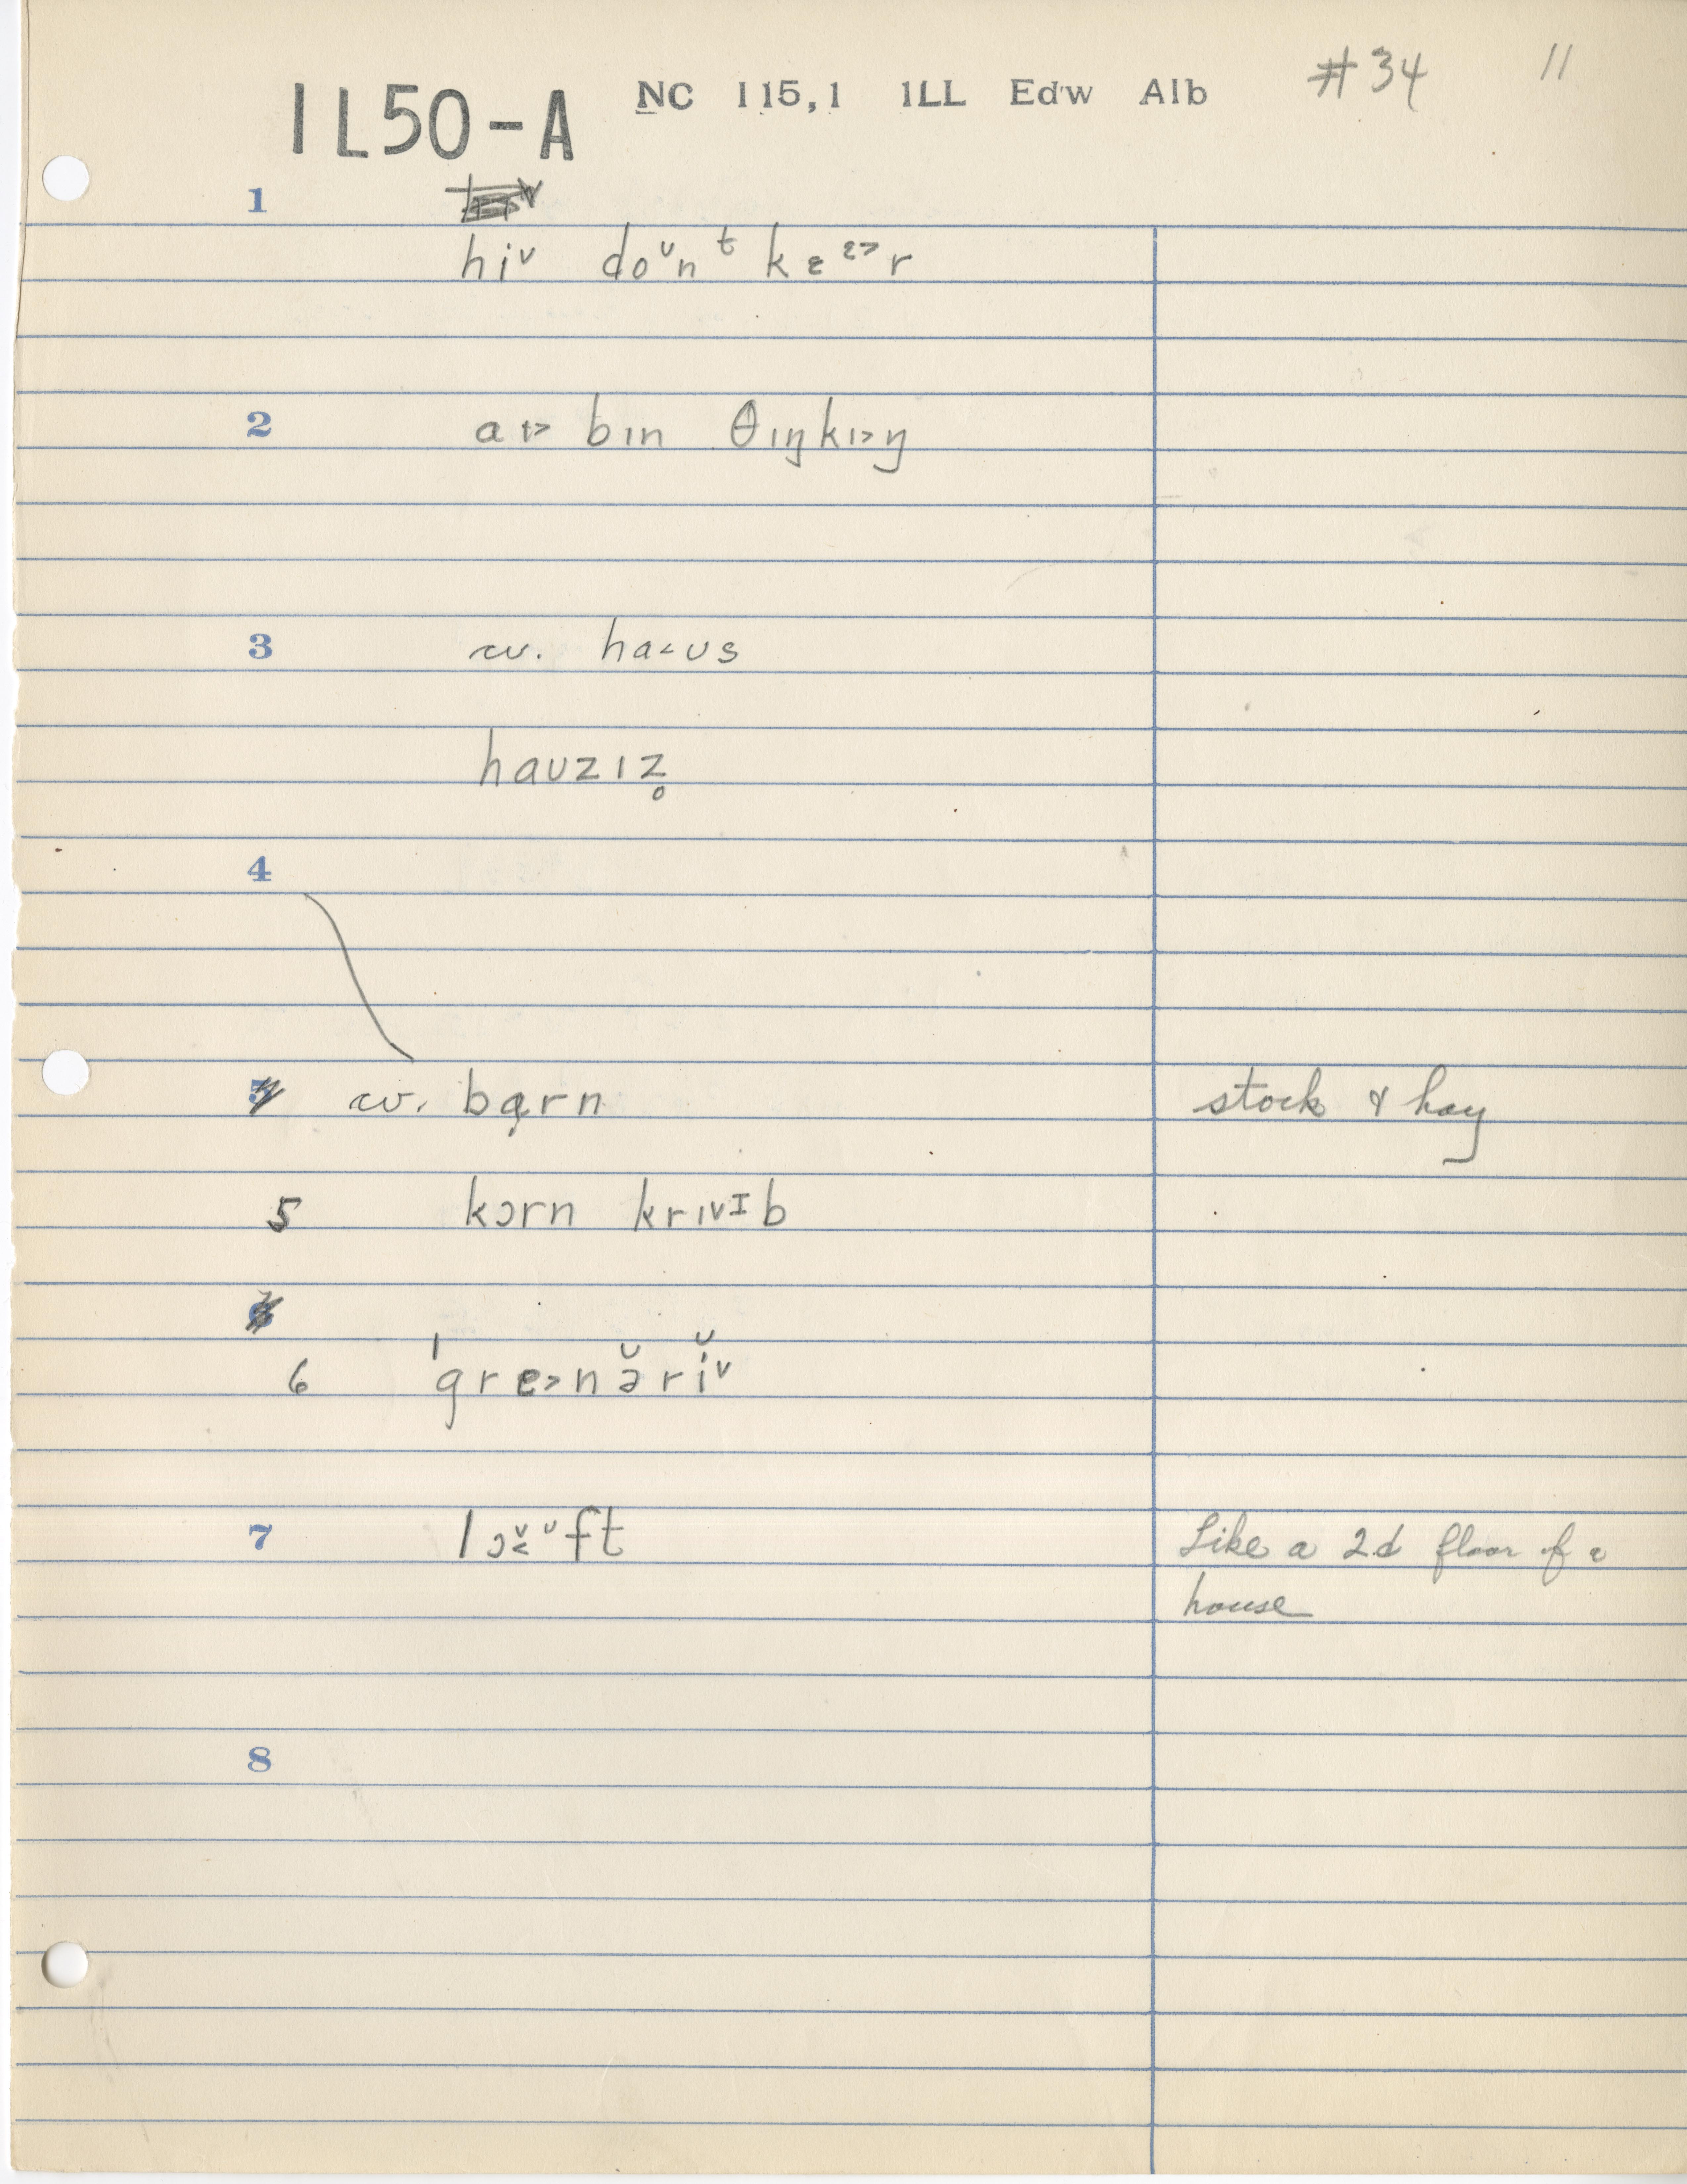 IL50-A NC 115,1 ILL Edw Alb #34 11
1
hi˅ doᵘnᵗ kɛᵋ˃r
2 aɪ˃ bɪn θɪŋkɪ˃ŋ
3 cv. ha˂ʊs
haʊzɪz̥
4
5 cv. bɑ̨rn stock & hay
5 kɔrn krɪ˅ᴵb
6
6 ˈgre˃nə̆rĭ˅
7 lɔ̌˂ᶷft Like a 2d floor of a
house
8